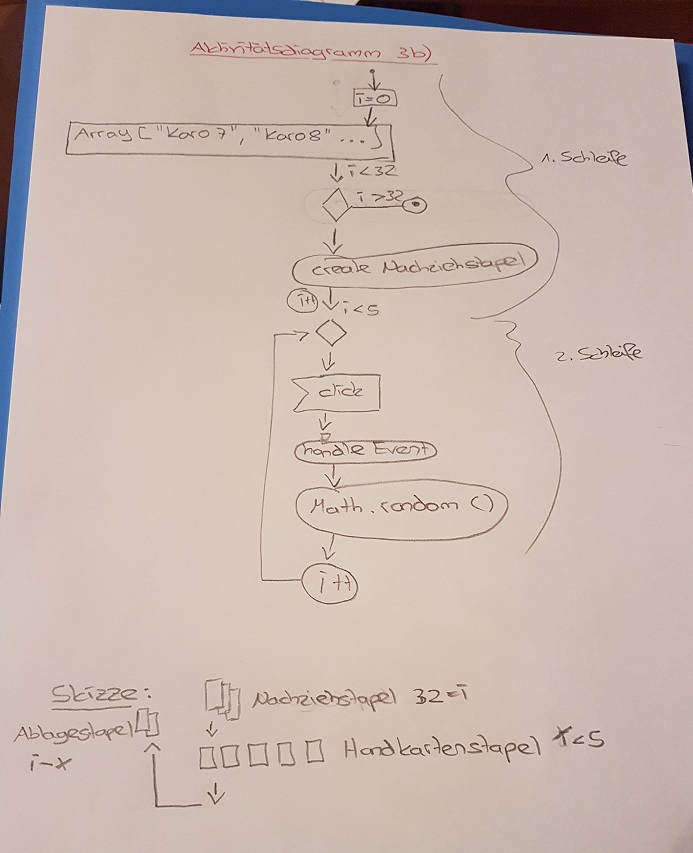 Aktivitätsdiagramm 3b)
i=0
Array ["Karo 7", "Karo 8" ...]
1. Schleife
i<32
i>32
create Nachziehstapel
i++
i<5
2. Schleife
click
handle Event
Math.random ()
i++
Skizze:
Nachziehstapel 32=i
Ablagestapel
Handkartenstapel x<5
i-x